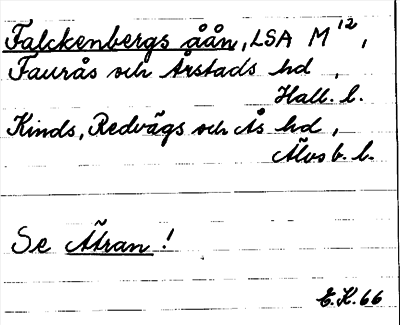 Falckenbergs åån, LSA M 12,
Faurås och Årstads hd,
Hall. l.
Kinds, Redvägs och Ås hd,
Älvsb. l.
Se Ätran!
E.K. 66